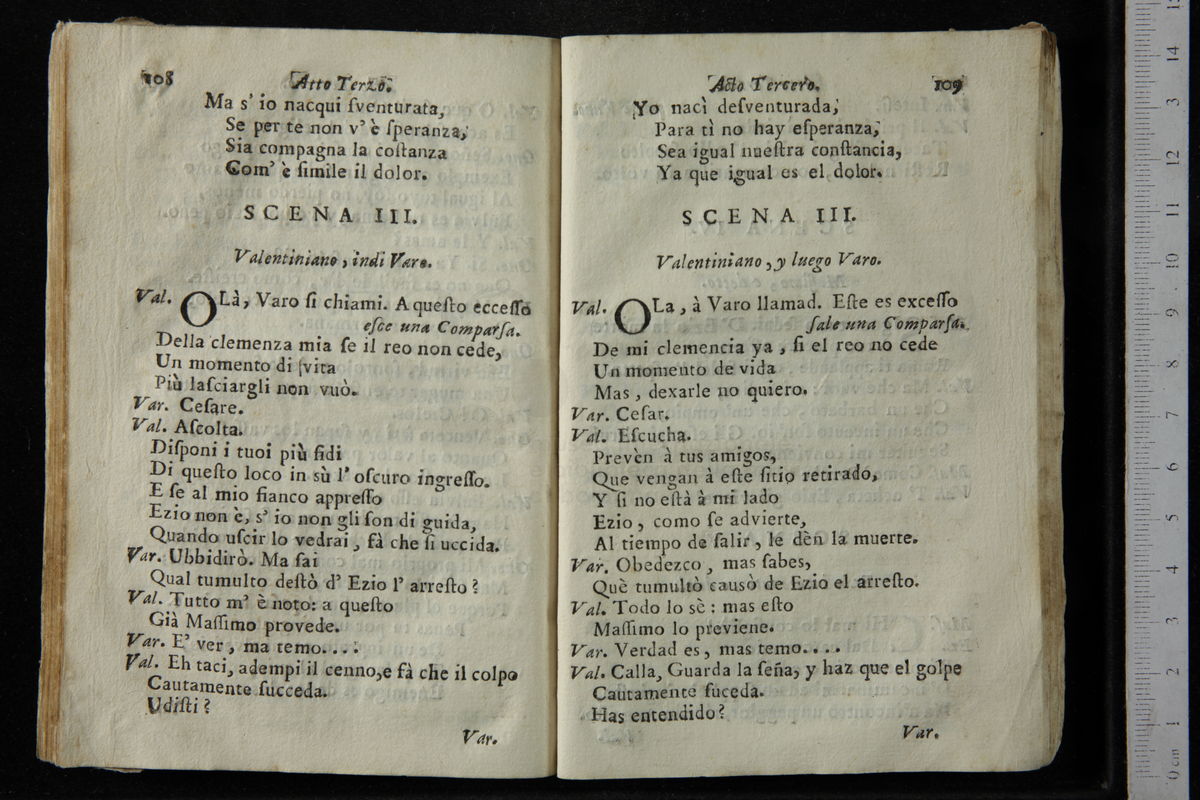 108
Atto Terzo.
Ma s' io nacqui ſventurata,
Se per te non v' è ſperanza,
Sia compagna la coſtanza
Com' è ſimile il dolor.
SCENA III.
Valentiniano, indi Varo.
Val. OLà, Varo ſi chiami. A queſto ecceſſo
eſce una Comparſa.
Della clemenza mia ſe il reo non cede,
Un momento di ſvita
Più laſciargli non vuò.
Var. Ceſare.
Val. Aſcolta.
Diſponi i tuoi più fidi
Di queſto loco in sù l' oſcuro ingreſſo.
E ſe al mio fianco appreſſo
Ezio non è, s' io non gli ſon di guida,
Quando uſcir lo vedrai, fà che ſi uccida.
Var. Ubbidirò. Ma ſai
Qual tumulto deſtò d' Ezio l' arreſto?
Val. Tutto m' è noto: a queſto
Già Maſſimo provede.
Var. E' ver, ma temo....
Val. Eh taci, adempi il cenno, e fà che il colpo
Cautamente ſucceda.
Udiſti?
Var.
109
Acto Tercero.
Yo nacì deſventurada,
Para tì no hay eſperanza,
Sea igual nueſtra conſtancia,
Ya que igual es el dolor.
SCENA III.
Valentiniano, y luego Varo.
Val. OLa, à Varo llamad. Eſte es exceſſo
ſale una Comparſa.
De mi clemencia ya, ſi el reo no cede
Un momento de vida
Mas, dexarle no quiero.
Var. Ceſar.
Val. Eſcucha.
Prevèn à tus amigos,
Que vengan à eſte ſitio retirado,
Y ſi no eſtà à mi lado
Ezio, como ſe advierte,
Al tiempo de ſalir, le dèn la muerte.
Var. Obedezco, mas ſabes,
Què tumultò causò de Ezio el arreſto.
Val. Todo lo sè: mas eſto
Maſſimo lo previene.
Var. Verdad es, mas temo....
Val. Calla, Guarda la ſeña, y haz que el golpe
Cautamente ſuceda.
Has entendido?
Var.
0 cm 1 2 3 4 5 6 7 8 9 10 11 12 3 14